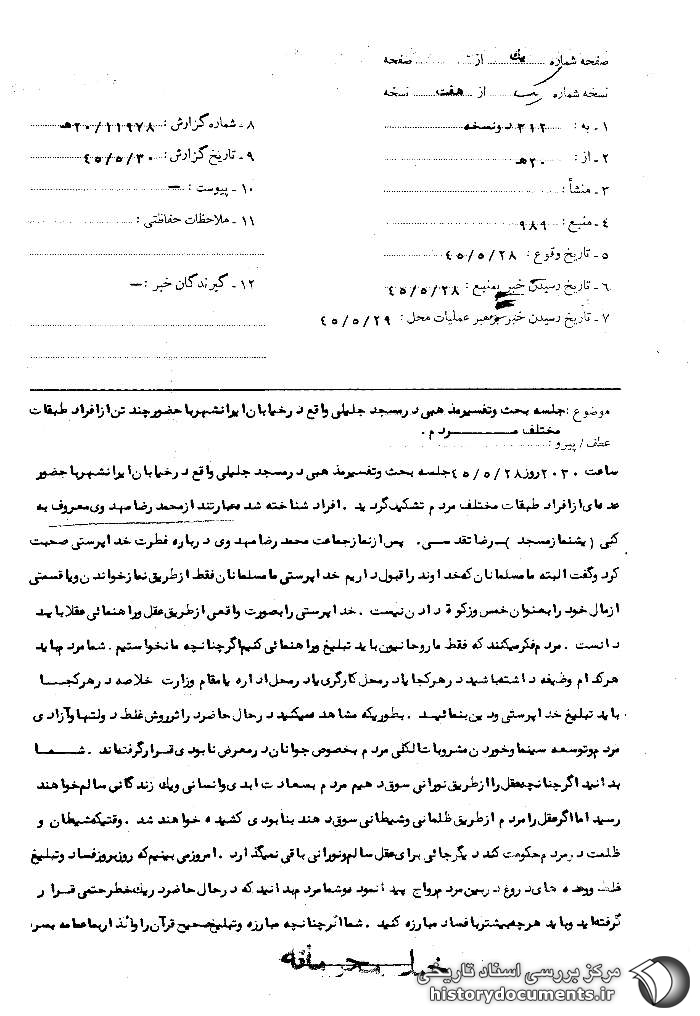 صفحه شماره یک از صفحه
نسخه شماره یک از هفت نسخه
۱ - به : ۳۱۲ دونسخه
۲ - از : ۲۰ هـ
۳ - منشأ :
۴ - منبع : ۹۸۹
۵ - تاریخ وقوع : ۴۵/۵/۲۸
۶ - تاریخ رسیدن خبر بمنبع : ۴۵/۵/۲۸
۷ - تاریخ رسیدن خبر برهبر عملیات محل : ۴۵/۵/۲۹
۸ - شماره گزارش : ۲۰/۱۱۹۷۸هـ
۹ - تاریخ گزارش : ۴۵/۵/۳۰
۱۰ - پیوست : —
۱۱ - ملاحظات حفاظتی :
۱۲ - گیرندگان خبر : —
موضوع : جلسه بحث وتفسیرمذهبی درمسجد جلیلی واقع درخیابان ایرانشهرباحضورچندتن ازافراد طبقات
مختلف مردم .
عطف / پیرو :
ساعت ۲۰۳۰روز ۴۵/۵/۲۸جلسه بحث وتفسیرمذهبی درمسجد جلیلی واقع درخیابان ایرانشهرباحضور
عده ای ازافراد طبقات مختلف مردم تشکیل گردید . افراد شناخته شده عبارتند ازمحمد رضا مهدوی معروف به
کنی ( پشنمازمسجد ) – رضا تقدسی . پس ازنمازجماعت محمد رضا مهدوی درباره فطرت خداپرستی صحبت
کرد وگفت البته ما مسلمانان که خداوند را قبول داریم خداپرستی ما مسلمانان فقط ازطریق نمازخواندن ویا قسمتی
ازمال خود را بعنوان خمس وزکوة دادن نیست . خداپرستی را بصورت واقعی ازطریق عقل وراهنمائی عقل باید
دانست . مردم فکرمیکنند که فقط ما روحانیون باید تبلیغ وراهنمائی کنیم اگرچنانچه ما نخواستیم . شما مردم باید
هرکدام وظیفه داشته باشید درهرکجا یا درمحل کارگری یا درمحل اداره یا مقام وزارت خلاصه درهرکجا
باید تبلیغ خداپرستی ودین بنمائید . بطوریکه مشاهده میکنید درحال حاضر دراثرروش غلط دولتها وآزادی
مردم وتوسعه سینما وخوردن مشروبات الکلی مردم بخصوص جوانان درمعرض نابودی قرارگرفته اند . شما
بدانید اگرچنانچه عقل را ازطریق نورانی سوق دهیم مردم بسعادت ابدی وانسانی ویک زندگانی سالم خواهند
رسید اما اگرعقل را مردم ازطریق ظلمانی وشیطانی سوق دهند بنابودی کشیده خواهند شد . وقتیکه شیطان و
ظلمت درمردم حکومت کند دیگرجائی برای عقل سالم ونورانی باقی نمیگذارد . امروزمی بینیم که روزبروزفساد وتبلیغ
غلط ووعده های دروغ دربین مردم رواج پیدا نموده وشما مردم بدانید که درحال حاضر دریک خطرحتمی قرار
گرفته اید وباید هرچه بیشتربا فساد مبارزه کنید . شما اگرچنانچه مبارزه وتبلیغ صحیح قرآن را
خیلی محرمانه
مرکز بررسی اسناد تاریخی
historydocuments.ir